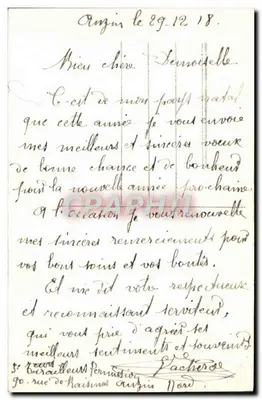 Anzin le 29.12.18.
Bien chère Demoiselle
C'est de mon pays natal
que cette année je vous envoie
mes meilleurs et sincères voeux
de bonne chance et de bonheur
pour la nouvelle année prochaine
A l'occasion je vous renouvelle
mes sincères remerciements pour
vos bons soins et vos bontés.
Et me dit votre respectueux
et reconnaissant serviteur,
qui vous prie d'agréer ses
meilleurs sentiments et souvenirs
5e Tirailleurs
90. rue de Raismes Anzin Nord